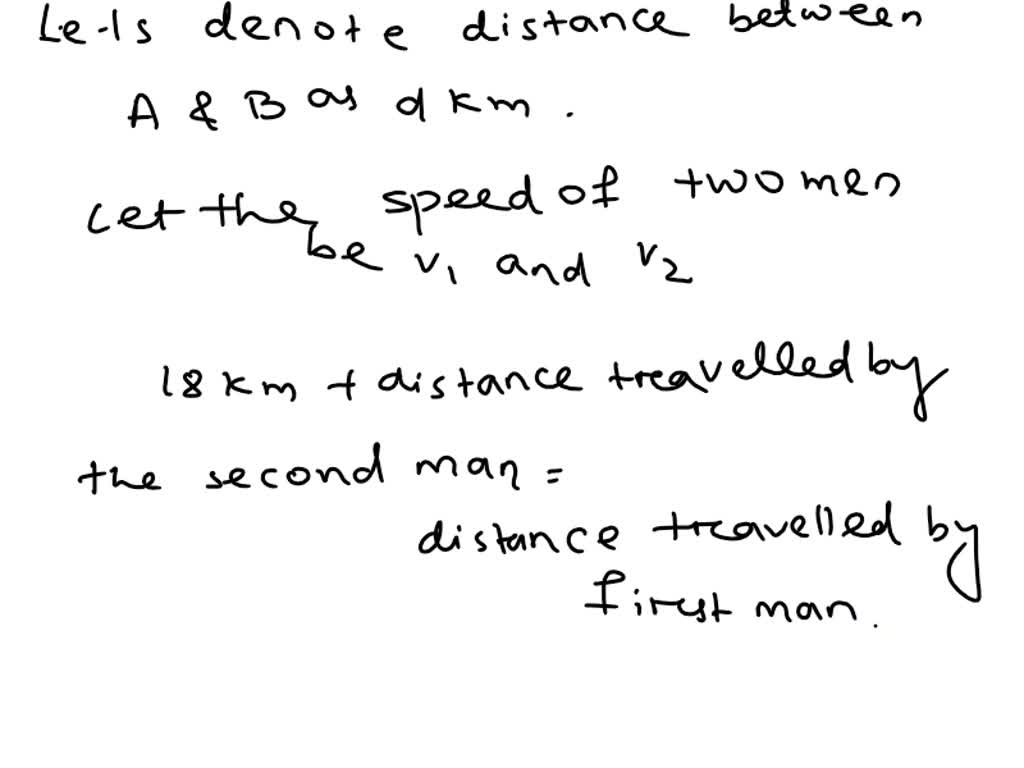 Lets denote distance between
A & B as d km.
Let the speed of two men
be v1 and v2
18 km + distance travelled by
the second man =
distance travelled by
first man.